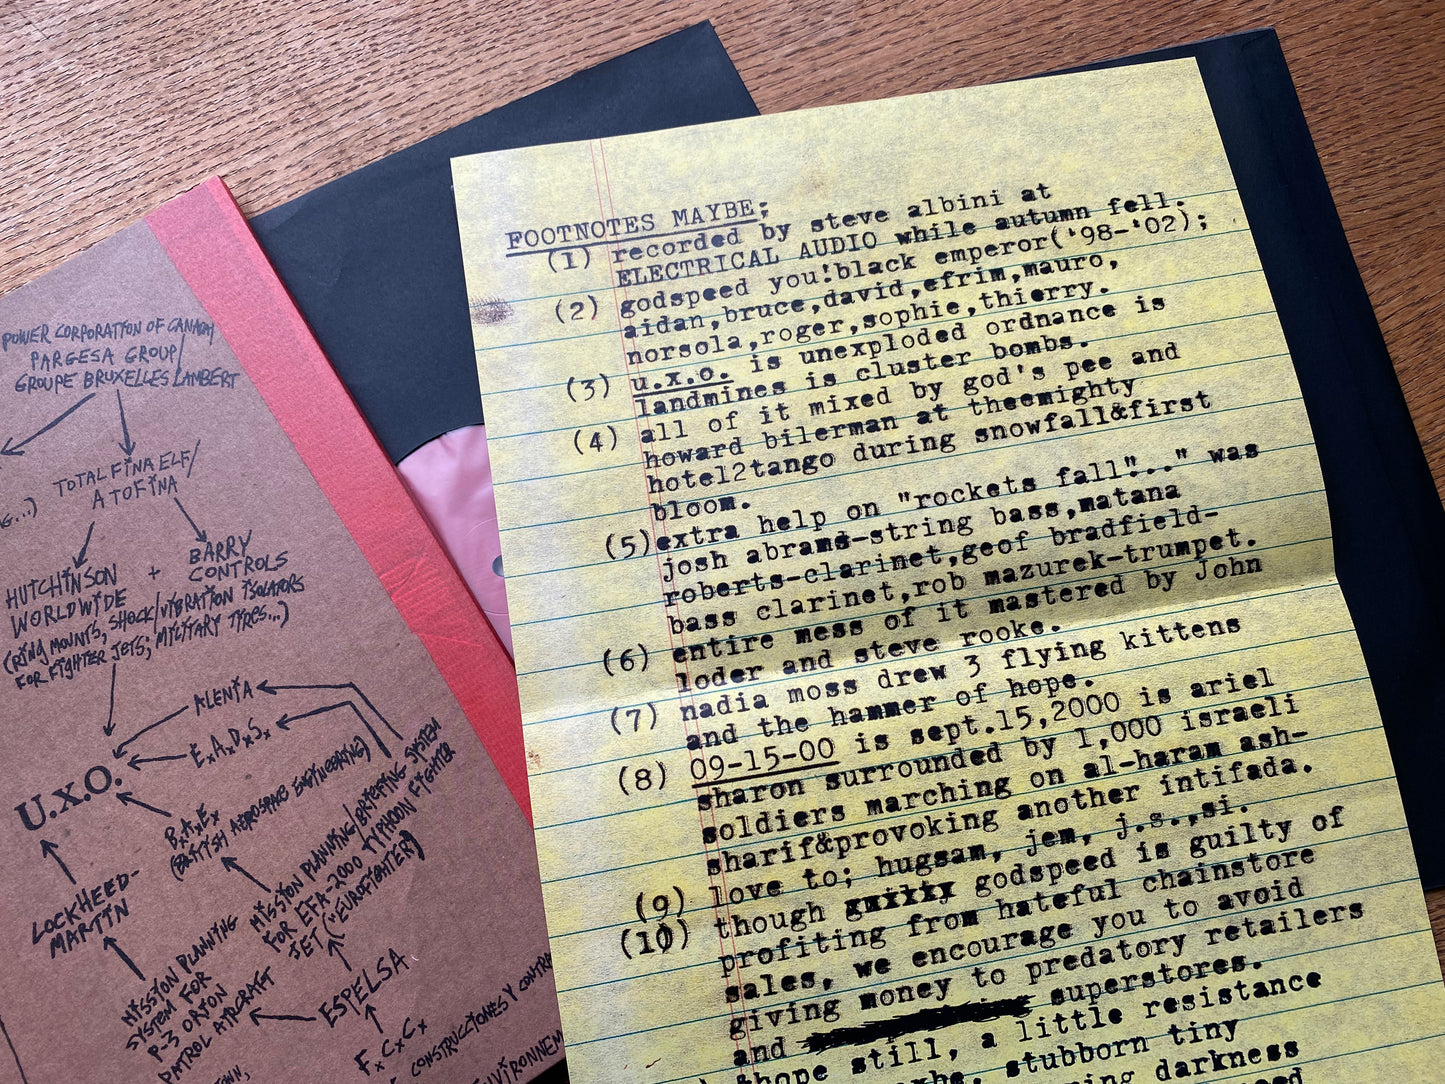 POWER CORPORATION OF CANADA/
PARGESA GROUP/
GROUPE BRUXELLES LAMBERT
TOTAL FINA ELF/
ATOFINA
HUTCHINSON
WORLDWIDE
+
BARRY
CONTROLS
(RING MOUNTS, SHOCK/VIBRATION ISOLATORS
FOR FIGHTER JETS; MILITARY TYRES...)
ALENIA
E.A.D.S.
U.X.O.
B.A.E.
(BRITISH AEROSPACE ENGINEERING)
LOCKHEED-
MARTIN
MISSION PLANNING/BRIEFING SYSTEM
FOR EFA-2000 TYPHOON FIGHTER
JET ("EUROFIGHTER)
MISSION PLANNING
SYSTEM FOR
P-3 ORION
PATROL AIRCRAFT
ESPELSA
F.C.C.
CONSTRUCCIONES Y CONTRA
FOOTNOTES MAYBE;
(1) recorded by steve albini at
ELECTRICAL AUDIO while autumn fell.
(2) godspeed you!black emperor('98-'02);
aidan,bruce,david,efrim,mauro,
norsola,roger,sophie,thierry.
(3) u.x.o. is unexploded ordnance is
landmines is cluster bombs.
(4) all of it mixed by god's pee and
howard bilerman at theemighty
hotel2tango during snowfall&first
bloom.
(5) extra help on "rockets fall"..." was
josh abrams-string bass,matana
roberts-clarinet,geof bradfield-
bass clarinet,rob mazurek-trumpet.
(6) entire mess of it mastered by John
loder and steve rooke.
(7) nadia moss drew 3 flying kittens
and the hammer of hope.
(8) 09-15-00 is sept.15,2000 is ariel
sharon surrounded by 1,000 israeli
soldiers marching on al-haram ash-
sharif&provoking another intifada.
(9) love to; hugsam, jem, j.s.,si.
(10) though godspeed is guilty of
profiting from hateful chainstore
sales, we encourage you to avoid
giving money to predatory retailers
and superstores.
&hope still, a little resistance
stubborn tiny
darkness